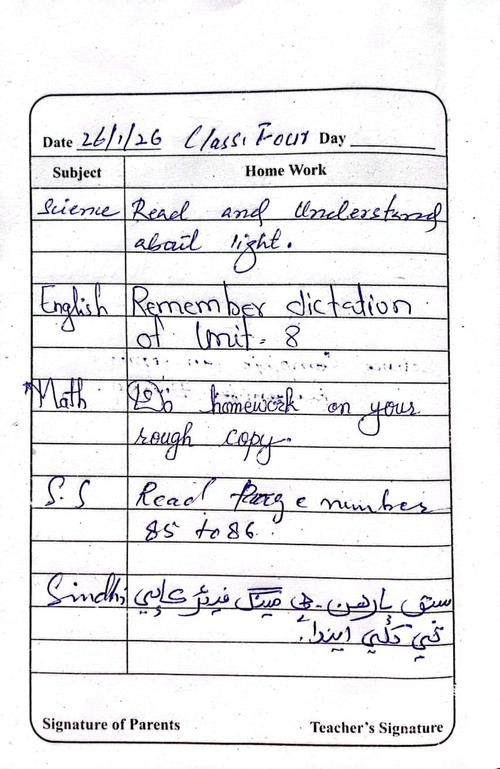 Date 26/1/26 Class: Four Day
Subject Home Work
Science Read and Understand
about light.
English Remember dictation
of Unit - 8
Math Do homework on your
rough copy.
S.S Read Page number
85 to 86.
Sindhi سبق يارهن - جي
لکي ايندا.
Signature of Parents Teacher's Signature